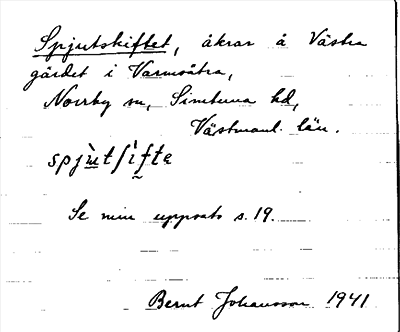 Spjutskiftet, åkrar å Västra
gärdet i Varmsätra,
Norrby sn, Simtuna hd,
Västmanl. län.
spju̇tʃìftе
Se min uppsats s. 19.
Bernt Johansson 1941